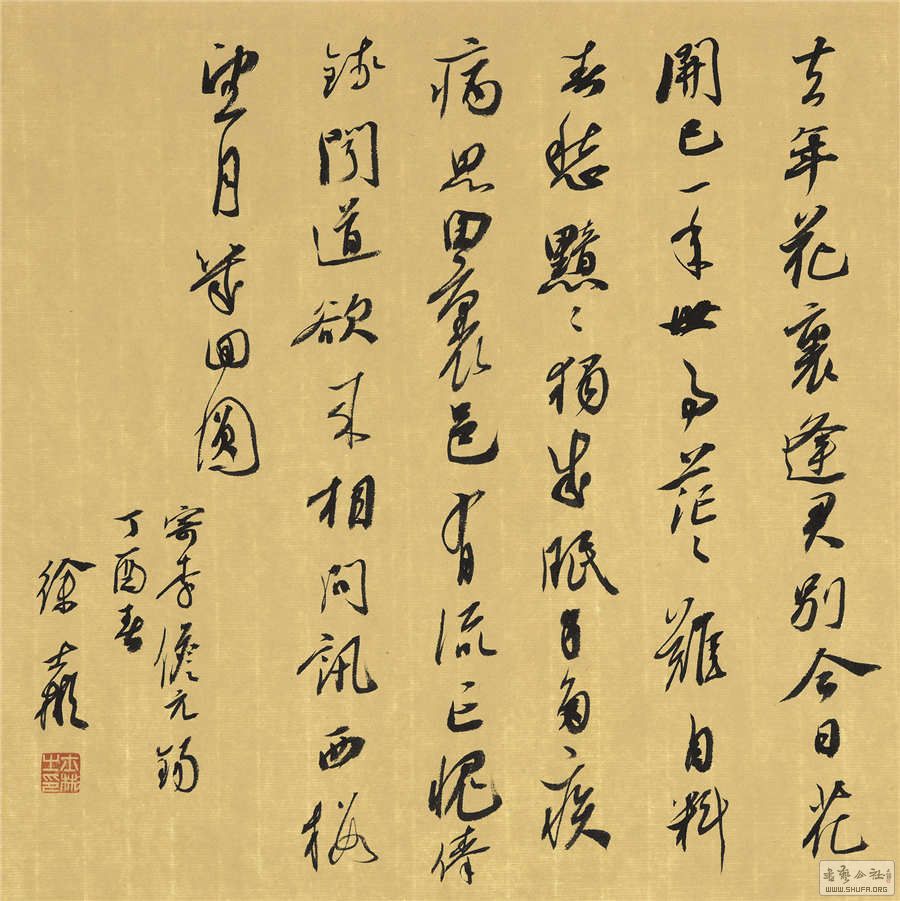 去年花裏逢君别今日花
開已一年世事茫〻難自料
春愁黯〻獨成眠身多疾
病思田裏邑有流亡愧俸
錢聞道欲來相問訊西樓
望月幾回圓
寄李儋元錫
丁酉春
徐
書藝公社
WWW.SHUFA.ORG